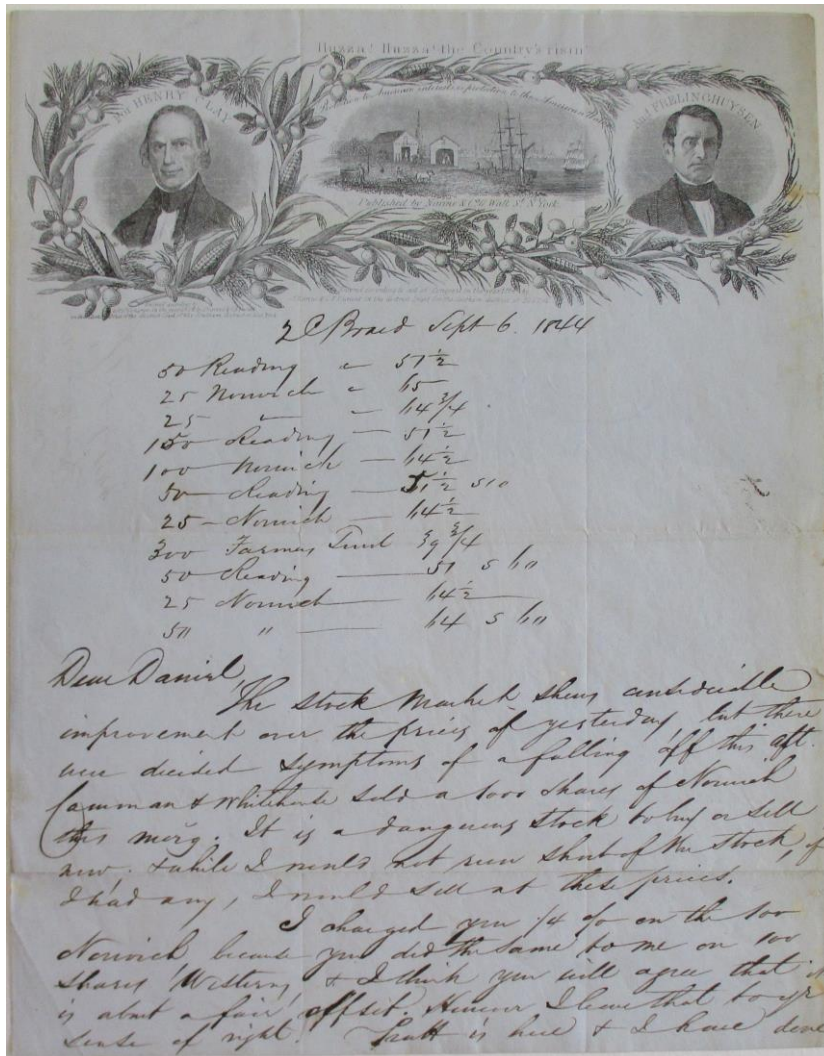 Huzza! Huzza! the Country's risin
For HENRY CLAY
And FRELINGHUYSEN
Protection to American interests protection to the American
Published by & Co. 11 Wall St. N. York
2 C Board Sept 6. 1844
50 Reading " 51 1/2
25 Norwich " 65
25 " " 64 3/4
150 Reading — 51 1/2
100 Norwich — 64 1/2
50 — Reading — 51 1/2 s 10
25 — Norwich — 64 1/2
300 Farmers Trust 39 3/4
50 Reading — 51 s 60
25 Norwich — 64 1/2
50 " — 64 s 60
Dear Daniel,
The stock market shews considerable
improvement over the prices of yesterday, but there
were decided symptoms of a falling off this aft.
Cammann & Whitehouse sold a 1000 shares of Norwich
this morg. It is a dangerous stock to buy or sell
now, & while I would not run short of the stock, if
I had any, I would sell at these prices.
I charged you 1/4 % on the 100
Norwich, because you did the same to me on 100
shares Western, & I think you will agree that it
is about a fair offset. However I leave that to yr
sense of right. is here & I have done